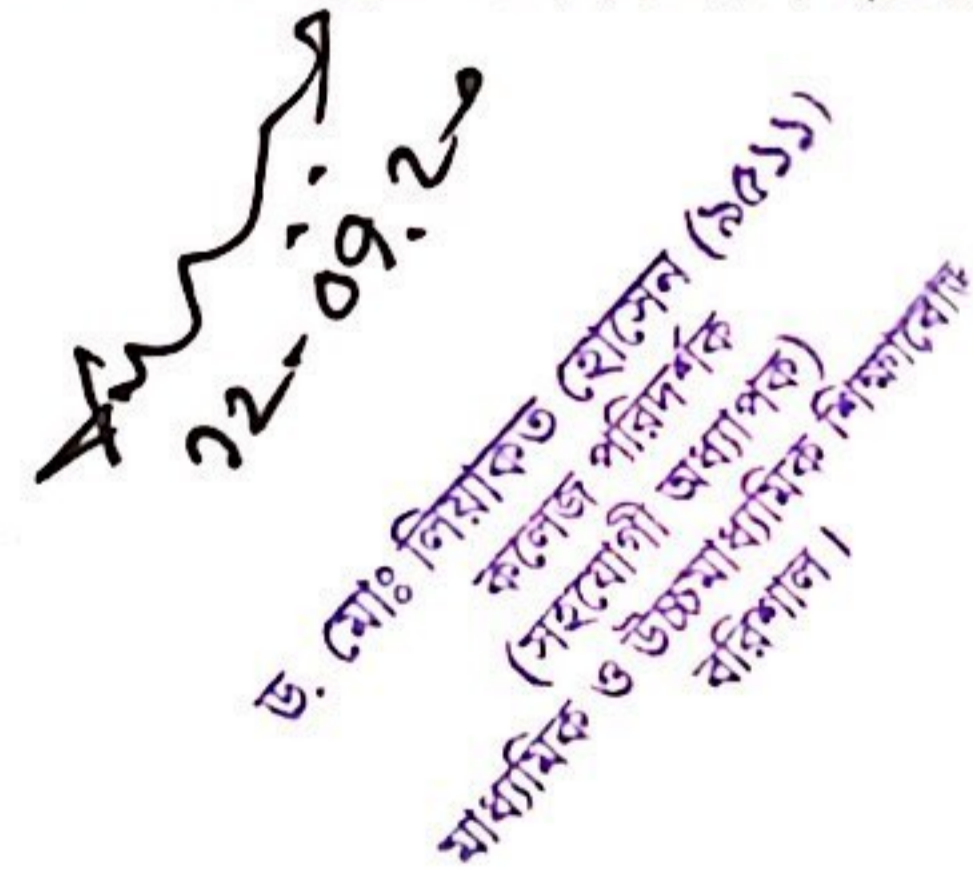 ড. মোঃ লিয়াকত হোসেন (৯৫১১)
কলেজ পরিদর্শক
(সহযোগী অধ্যাপক)
মাধ্যমিক ও উচ্চমাধ্যমিক শিক্ষাবোর্ড
বরিশাল।